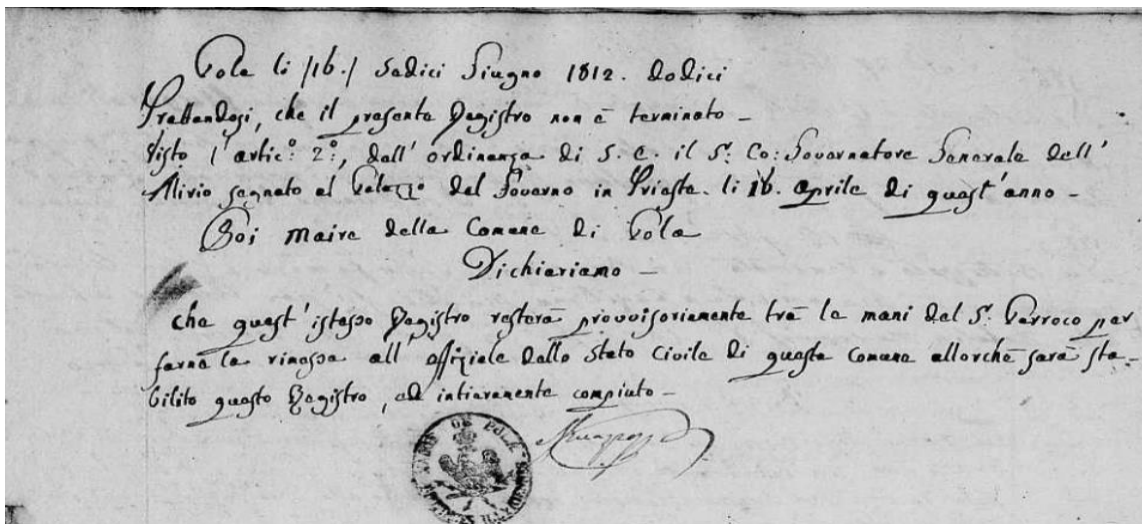 Pola li /16./ Sedici Giugno 1812. dodici
Trattandosi, che il presente Registro non è terminato -
Visto l'artic.º 2.º, dell'ordinanza di S. E. il S.r Co: Governatore Generale dell'
Illirio segnato al Palazzo del Governo in Trieste li 16. aprile di quest'anno -
Noi Maire della Comune di Pola
Dichiariamo -
che quest'istesso Registro resterà provvisoriamente trà le mani del S.r Parroco per
farne la rimessa all'offiziale dello Stato Civile di questa Comune allorchè sarà sta-
bilito questo Registro, ed intieramente compiuto -
MAIRIE DE POLA